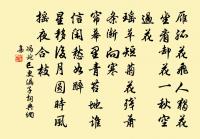 雁孤花飛人獨花
坐看却花一秋空
過花
瑤草短菊花殘蕭
条漸向寒
簾幕里青苔地誰
信閑愁如醉
星移後月圓時風
搖夜合枝
馮延巳更漏子詞典網
集